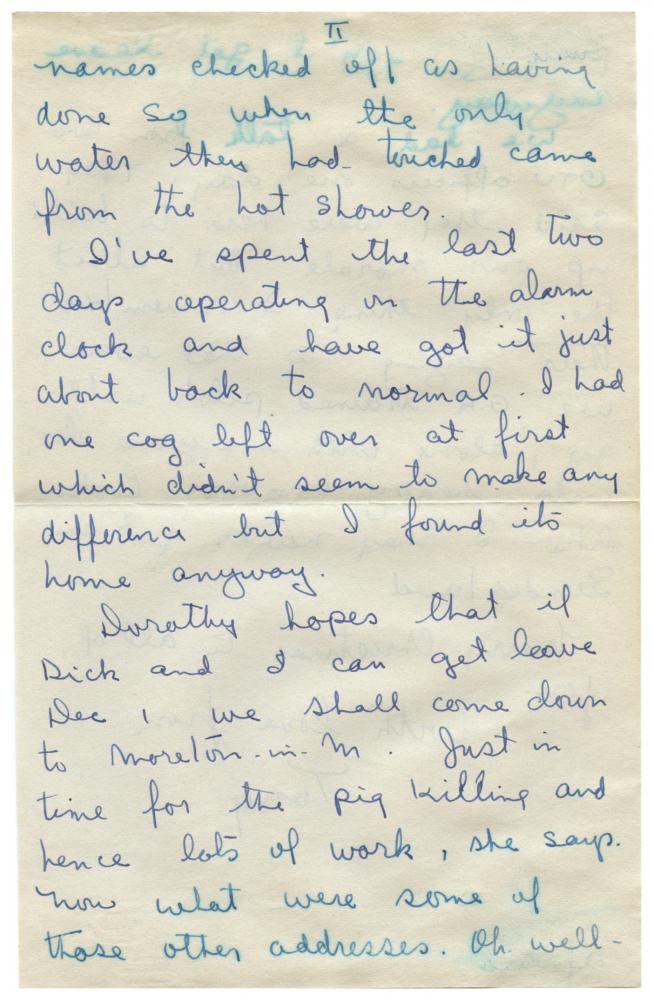 II
names checked off as having
done so when the only
water they had touched came
from the hot shower.
I've spent the last two
days operating on the alarm
clock and have got it just
about back to normal. I had
one cog left over at first
which didn't seem to make any
difference but I found its
home anyway.
Dorothy hopes that if
Dick and I can get leave
Dec 1 we shall come down
to Moreton-in-M. Just in
time for the pig killing and
hence lots of work, she says.
Now what were some of
those other addresses. Oh well-